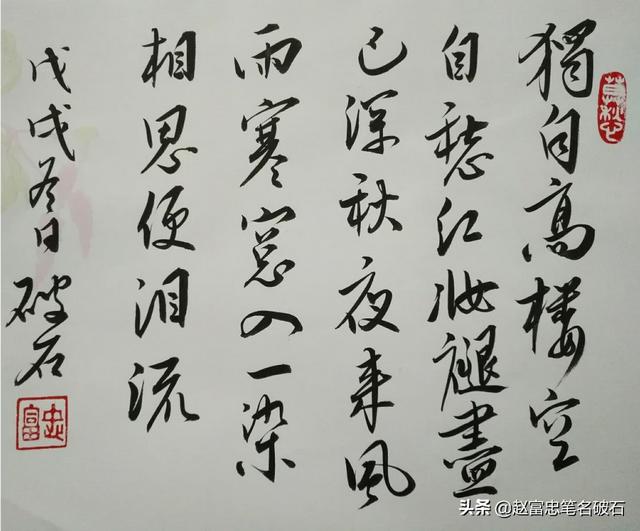 獨自高樓空
自愁红妝褪盡
已深秋夜来風
雨寒窓入一染
相思便泪流
戊戌冬日破石
富忠
头条 @赵富忠笔名破石